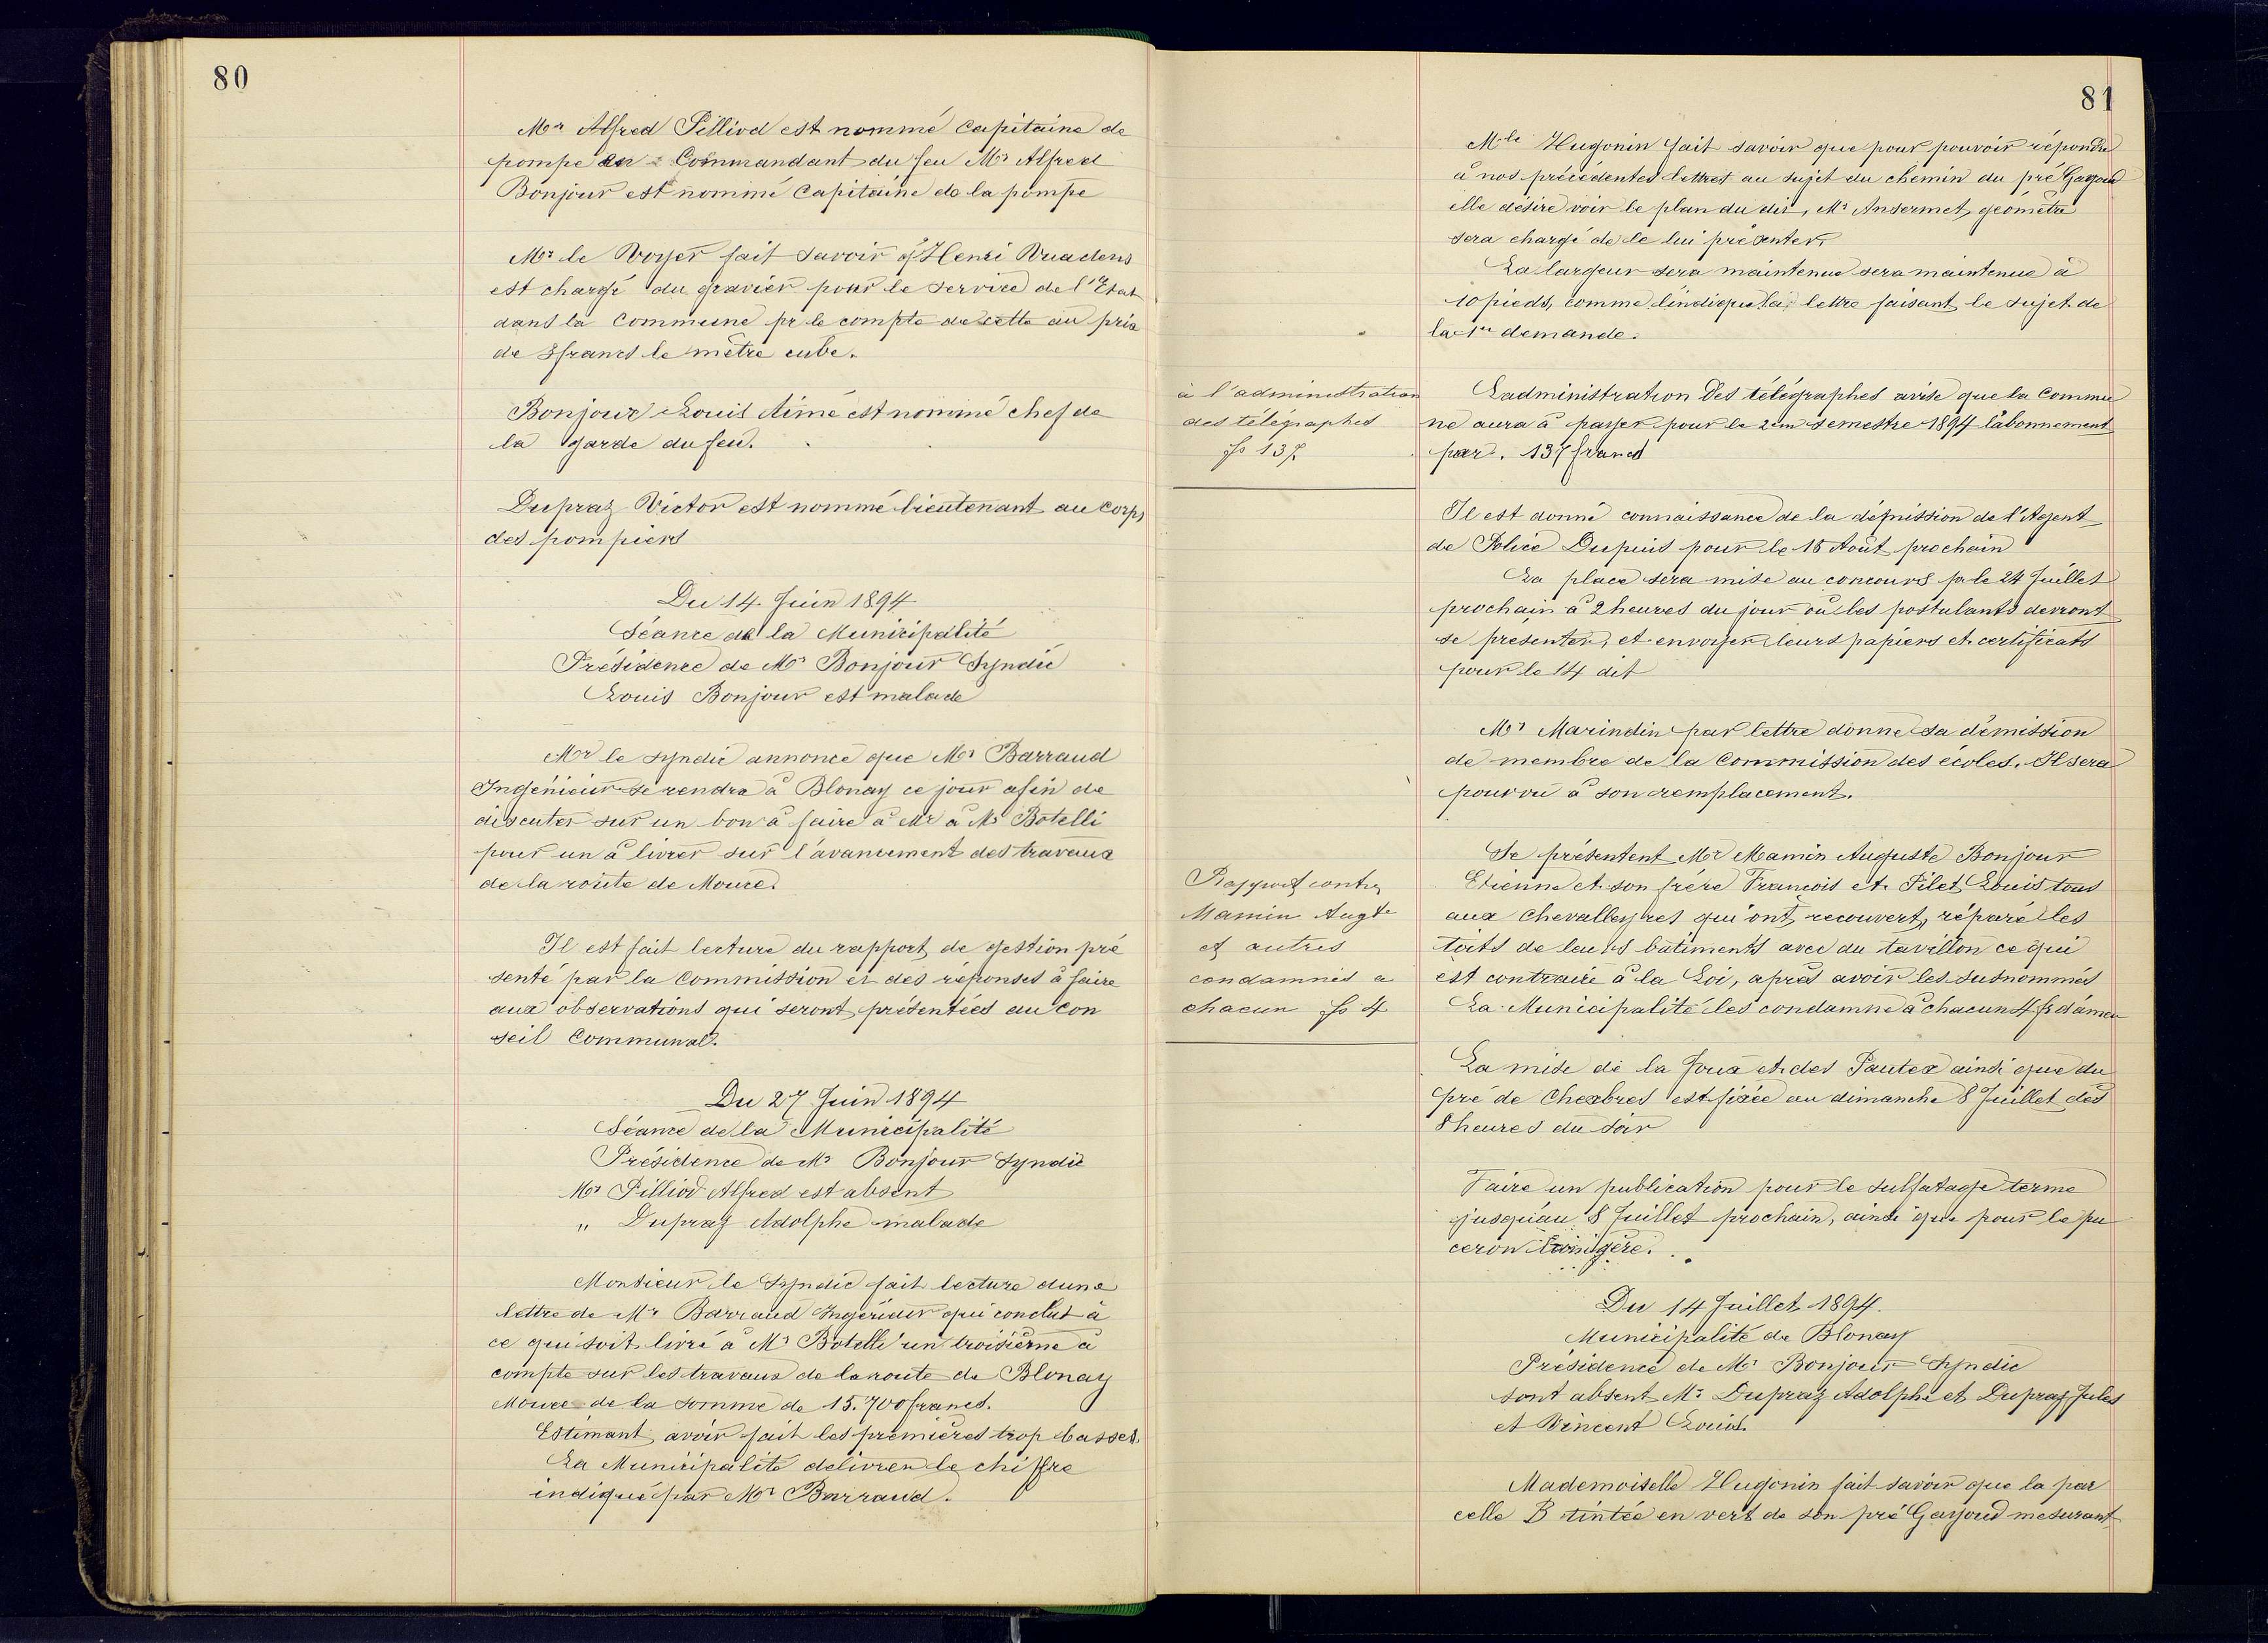 80
Mr Alfred Pilliod est nommé Capitaine de
pompe Commandant du feu Mr Alfred
Bonjour est nommé Capitaine de la pompe
Mr le Voyer fait savoir q' Henri Vuadens
est chargé du gravier pour le service de l'Etat
dans la Commune pr le compte de cette au prix
de 3 francs le mètre cube.
Bonjour Louis Aimé est nommé chef de
la garde du feu.
Dupraz Victor est nommé lieutenant au Corps
des pompiers
Du 14 Juin 1894
Séance de la Municipalité
Présidence de Mr Bonjour Syndic
Louis Bonjour est malade
Mr le syndic annonce que Mr Barraud
Ingénieur se rendra à Blonay ce jour afin de
discuter sur un bon à faire à Mr à Mr Botelli
pour un à livrer sur l'avancement des travaux
de la route de Mouce.
Il est fait lecture du rapport de gestion pré
senté par la Commission et des réponses à faire
aux observations qui seront présentées au Con
seil Communal.
Du 27 Juin 1894
Séance de la Municipalité
Présidence de Mr Bonjour Syndic
Mr Pilliod Alfred est absent
" Dupraz Adolphe malade
Monsieur le Syndic fait lecture dune
lettre de Mr Barraud Ingénieur qui conclut à
ce qui soit livré à Mr Botelli un troisième à
compte sur les travaux de la route de Blonay
Mouce de la somme de 15.700 francs.
Estimant avoir fait les premières trop basses.
La Municipalité delivrer le chiffre
indiqué par Mr Barraud.
81
Mlle Hugonin fait savoir que pour pouvoir répondre
à nos précédentes lettres au sujet du chemin du pré Gayoud
elle désire voir le plan du dit, Mr Ansermet, géomètre
sera chargé de le lui présenter.
La largeur sera maintenue sera maintenue à
10 pieds, comme l'indique la lettre faisant le sujet de
la 1re demande.
à l'administration
des télégraphes
fs 137
L'administration Des télégraphes avise que la Commu
ne aura à payer pour le 2em semestre 1894 l'abonnement
par. 137 francs
Il est donné connaissance de la démission de l'Agent
de Police Dupuis pour le 15 Août prochain
La place sera mise au concours pr le 24 Juillet
prochain à 2 heures du jour où les postulants devront
se présenter, et envoyer leurs papiers et certificats
pour le 14 dit
Mr Marindin par lettre donne sa démission
de membre de la Commission des écoles. Il sera
pourvu à son remplacement.
Rapport contre
Mamin Augte
et autres
condamnés a
chacun fs 4
Se présentent Mr Mamin Auguste Bonjour
Etienne et son frère François et Pilet Louis tous
aux Chevalleyres qui ont, recouvert, réparé les
toits de leurs bâtiments avec du tavillon ce qui
est contraire à la Loi, après avoir les susnommés
La Municipalité les condamne à chacun 4 fs d'amen
La mise de la Joux et des Pautex ainsi que du
pré de Chexbres est fixée au dimanche 8 Juillet dès
8 heures du soir
Faire un publication pour le sulfatage terme
jusqu'au 8 Juillet prochain, ainsi que pour le pu
ceron lanigère.
Du 14 Juillet 1894.
Municipalité de Blonay
Présidence de Mr Bonjour Syndic
sont absent Mr Dupraz Adolphe et Dupraz Jules
et Vincent Louis.
Mademoiselle Hugonin fait savoir que la par
celle B tintée en vert de son pré Gayoud mesurant